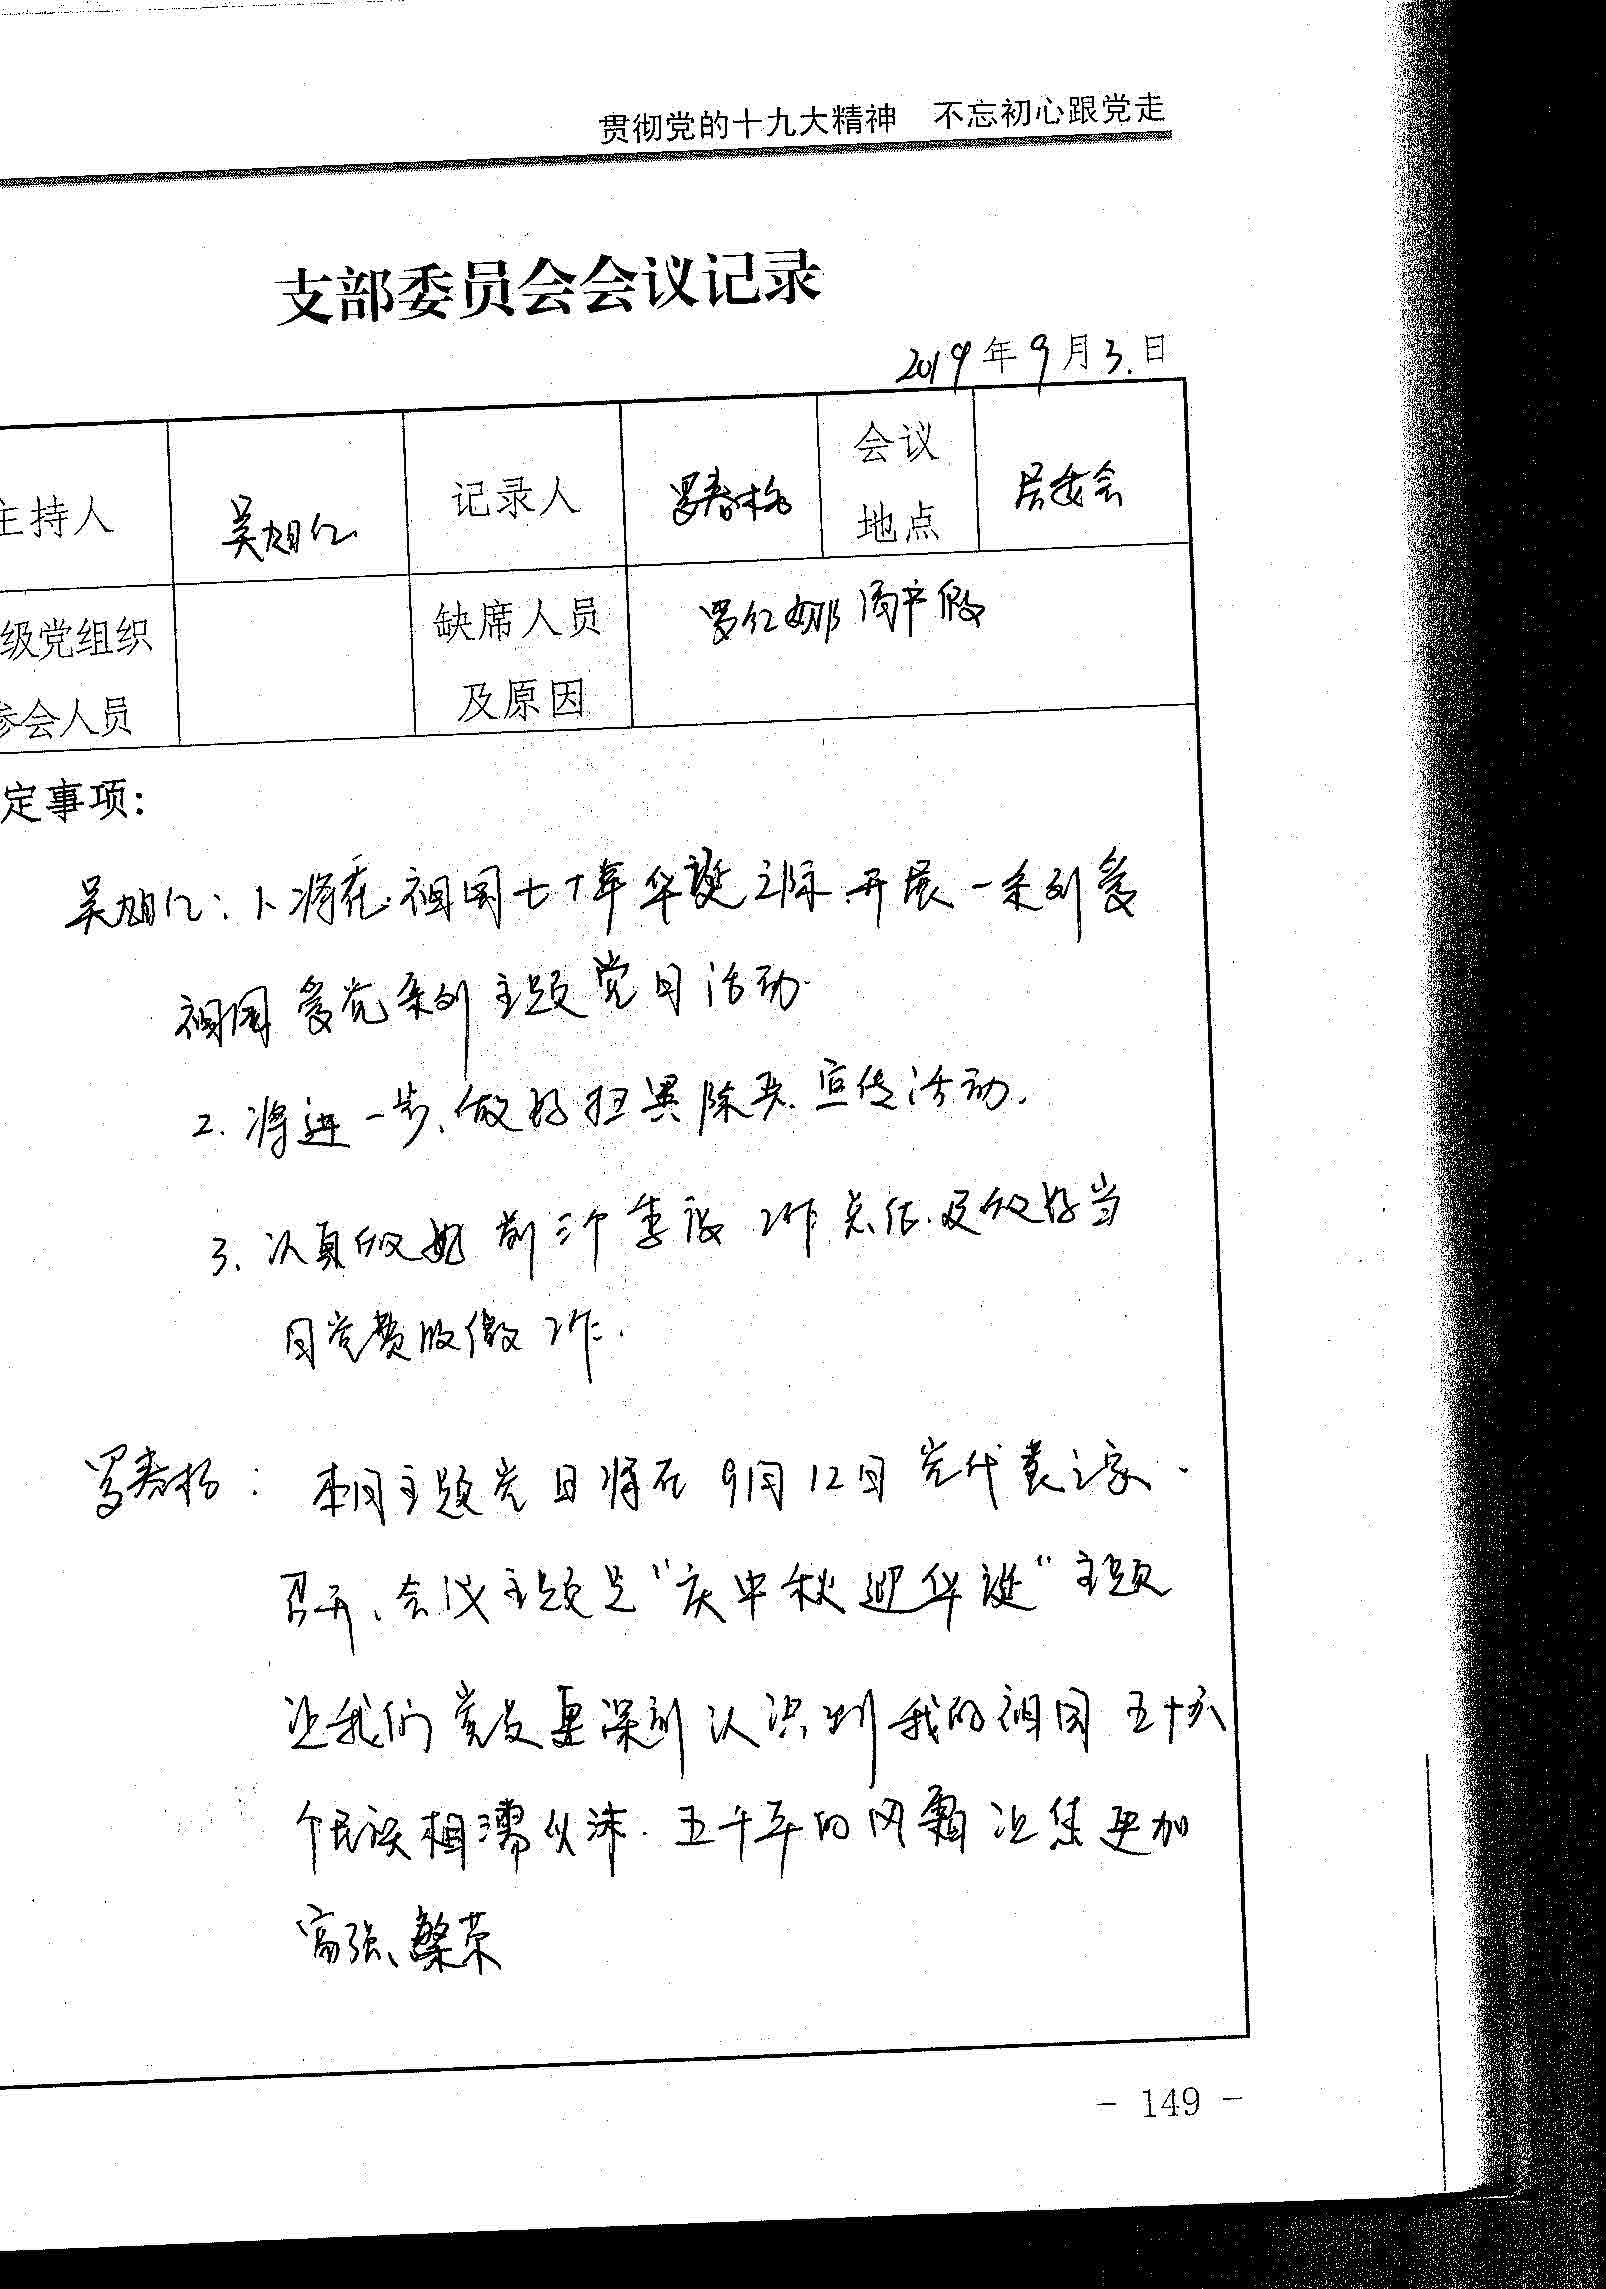 贯彻党的十九大精神 不忘初心跟党走
支部委员会会议记录
2019年9月3.日
主持人 吴旭亿 记录人 罗春杨 会议地点 居委会
级党组织参会人员 缺席人员及原因 罗红娜 产假
定事项:
吴旭亿: 1、将在祖国七十年华诞之际开展一系列爱
祖国爱党系列主题党日活动.
2. 将进一步做好扫黑除恶宣传活动.
3、认真做好前三个季度工作总结.及做好当
月党费收缴工作.
罗春杨: 本月主题党日将在9月12日党代表之家.
召开、会议主题是“庆中秋迎华诞”主题
让我们党员更深刻认识到我的祖国五十六
个民族相濡以沫.五千年的风霜让您更加
富强、繁荣
- 149 -